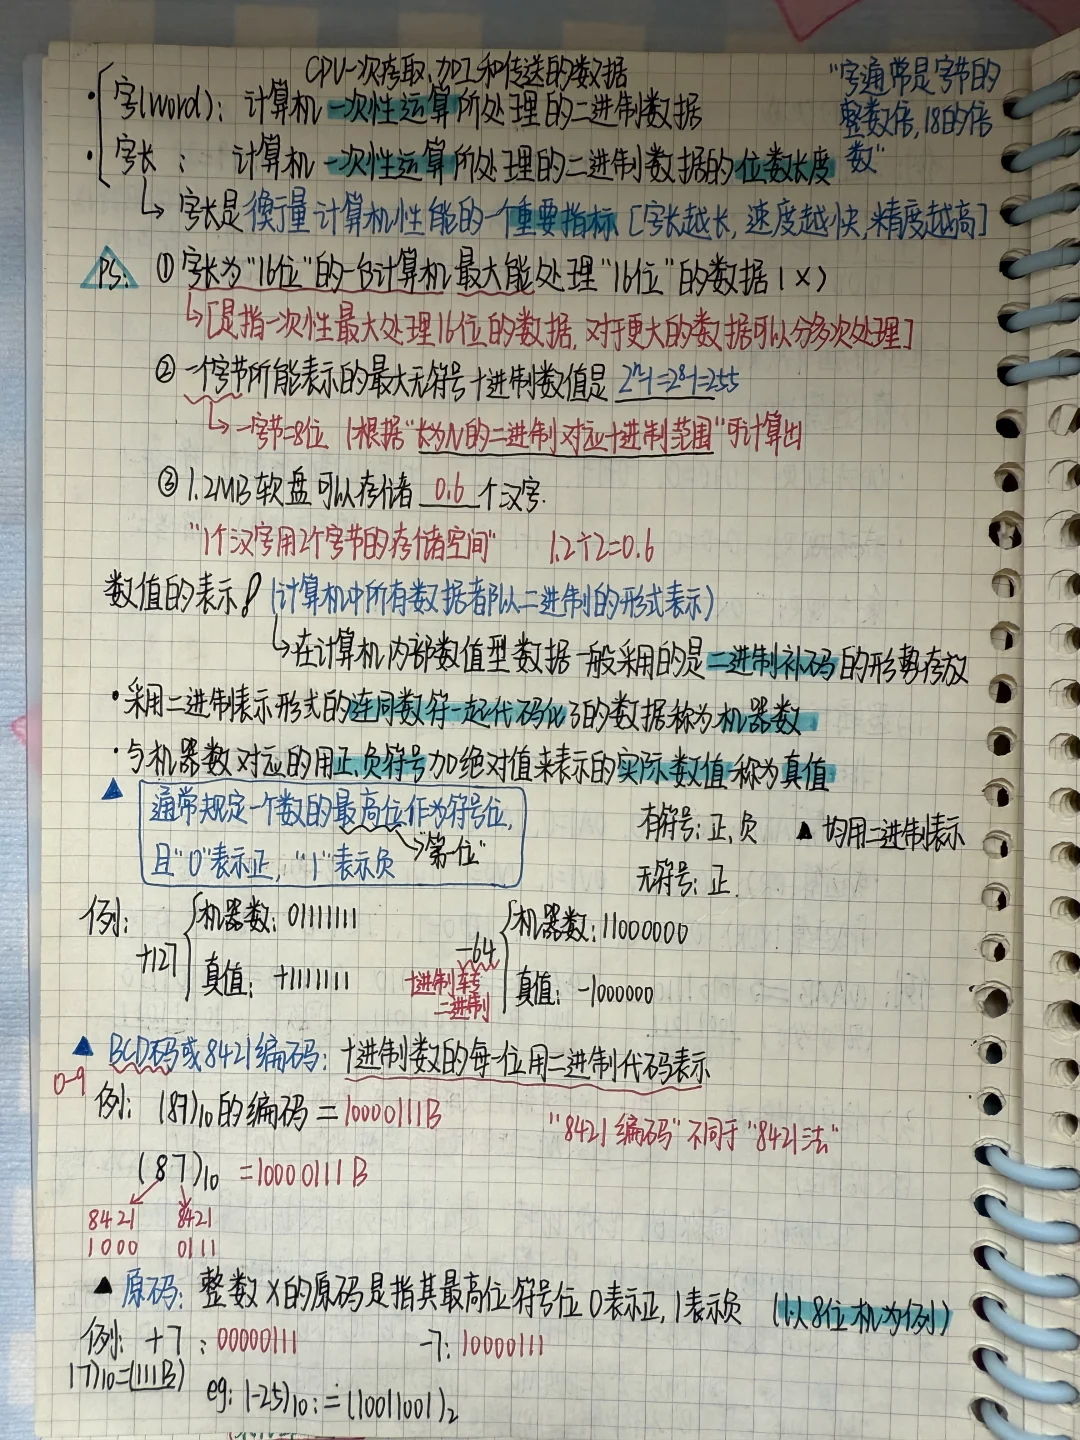 CPU一次存取、加工和传送的数据
· 字(word): 计算机一次性运算所处理的二进制数据
"字通常是字节的
整数倍, 18的倍
数"
· 字长: 计算机一次性运算所处理的二进制数据的位数长度
↳ 字长是衡量计算机性能的一个重要指标 [字长越长, 速度越快, 精度越高]
PS: ① 字长为"16位"的一台计算机最大能处理"16位"的数据 (×)
↳[是指一次性最大处理16位的数据, 对于更大的数据可以分多次处理]
② 一个字节所能表示的最大无符号十进制数值是 2ⁿ-1=2⁸-1=255
↳ 一字节=8位 (根据"长为N的二进制对应十进制范围"可计算出
③ 1.2MB软盘可以存储 0.6 个汉字.
"1个汉字用2个字节的存储空间" 1.2÷2=0.6
数值的表示 (计算机中所有数据都以二进制的形式表示)
↳在计算机内部数值型数据一般采用的是二进制补码的形势存放
· 采用二进制表示形式的连同数符一起代码化了的数据称为机器数
· 与机器数对应的用正、负符号加绝对值来表示的实际数值称为真值
▲ 通常规定一个数的最高位作为符号位,
且"0"表示正, "1"表示负
→"第一位"
有符号: 正、负 ▲ 均用二进制表示
无符号: 正.
例: +127 机器数: 01111111
真值: +1111111
-64 机器数: 11000000
十进制转
二进制
真值: -1000000
▲ BCD码或8421编码: 十进制数的每一位用二进制代码表示
0-9
例: (87)₁₀的编码=10000111B
"8421编码"不同于"8421法"
(87)₁₀ =10000111B
8421 8421
1000 0111
▲ 原码: 整数X的原码是指其最高位符号位0表示正, 1表示负 (以8位机为例)
例: +7: 00000111 -7: 10000111
(7)₁₀=(111B)
eg: (-25)₁₀:=(10011001)₂